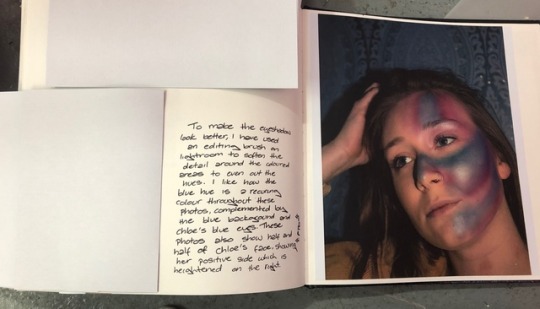 To make the eyeshadow
look better, I have used
an editing brush on
lightroom to soften the
detail around the coloured
areas to even out the
hues. I like how the
blue hue is a recurring
colour throughout these
photos, complemented by
the blue background and
chloe's blue eyes. These
photos also show half and
half of chloe's face, showing
her positive side which is
heightened on the right